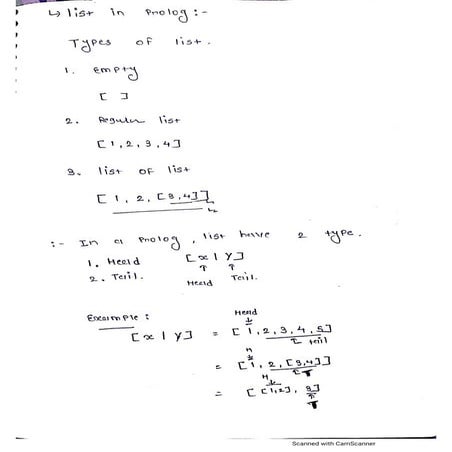 ↳ list in Prolog :-
Types of list.
1. Empty
[ ]
2. Regular list
[1,2,3,4]
3. list of list
[1, 2, [3,4]]
:- In a Prolog, list have 2 type.
1. Head [x | Y]
2. Tail. Head Tail.
Example : Head
[x | Y] = [1,2,3,4,5]
tail
H
= [1, 2, [3,4]]
T
H
= [[1,2], 3]
T
Scanned with CamScanner